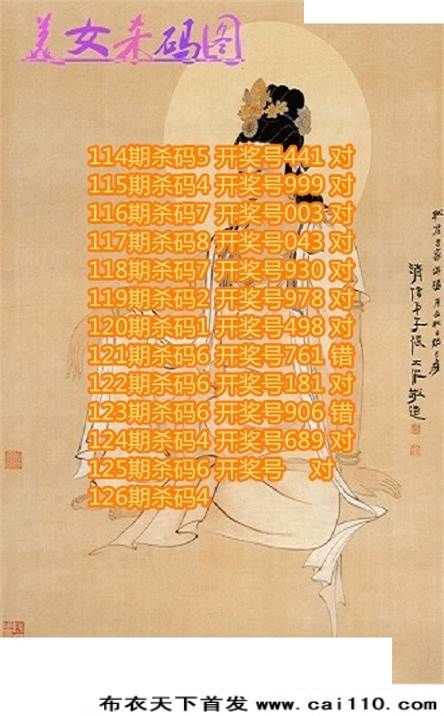 美女杀码图
114期杀码5 开奖号441 对
115期杀码4 开奖号999 对
116期杀码7 开奖号003 对
117期杀码8 开奖号043 对
118期杀码7 开奖号930 对
119期杀码2 开奖号978 对
120期杀码1 开奖号498 对
121期杀码6 开奖号761 错
122期杀码6 开奖号181 对
123期杀码6 开奖号906 错
124期杀码4 开奖号689 对
125期杀码6 开奖号 对
126期杀码4
布衣天下首发 www.cai110.com